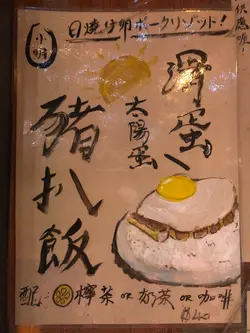 小明
日焼け卵ポークリゾット!
供應呢!
滑蛋、
太陽蛋
豬扒飯
配: 檸茶 or 奶茶 or 咖啡
$40